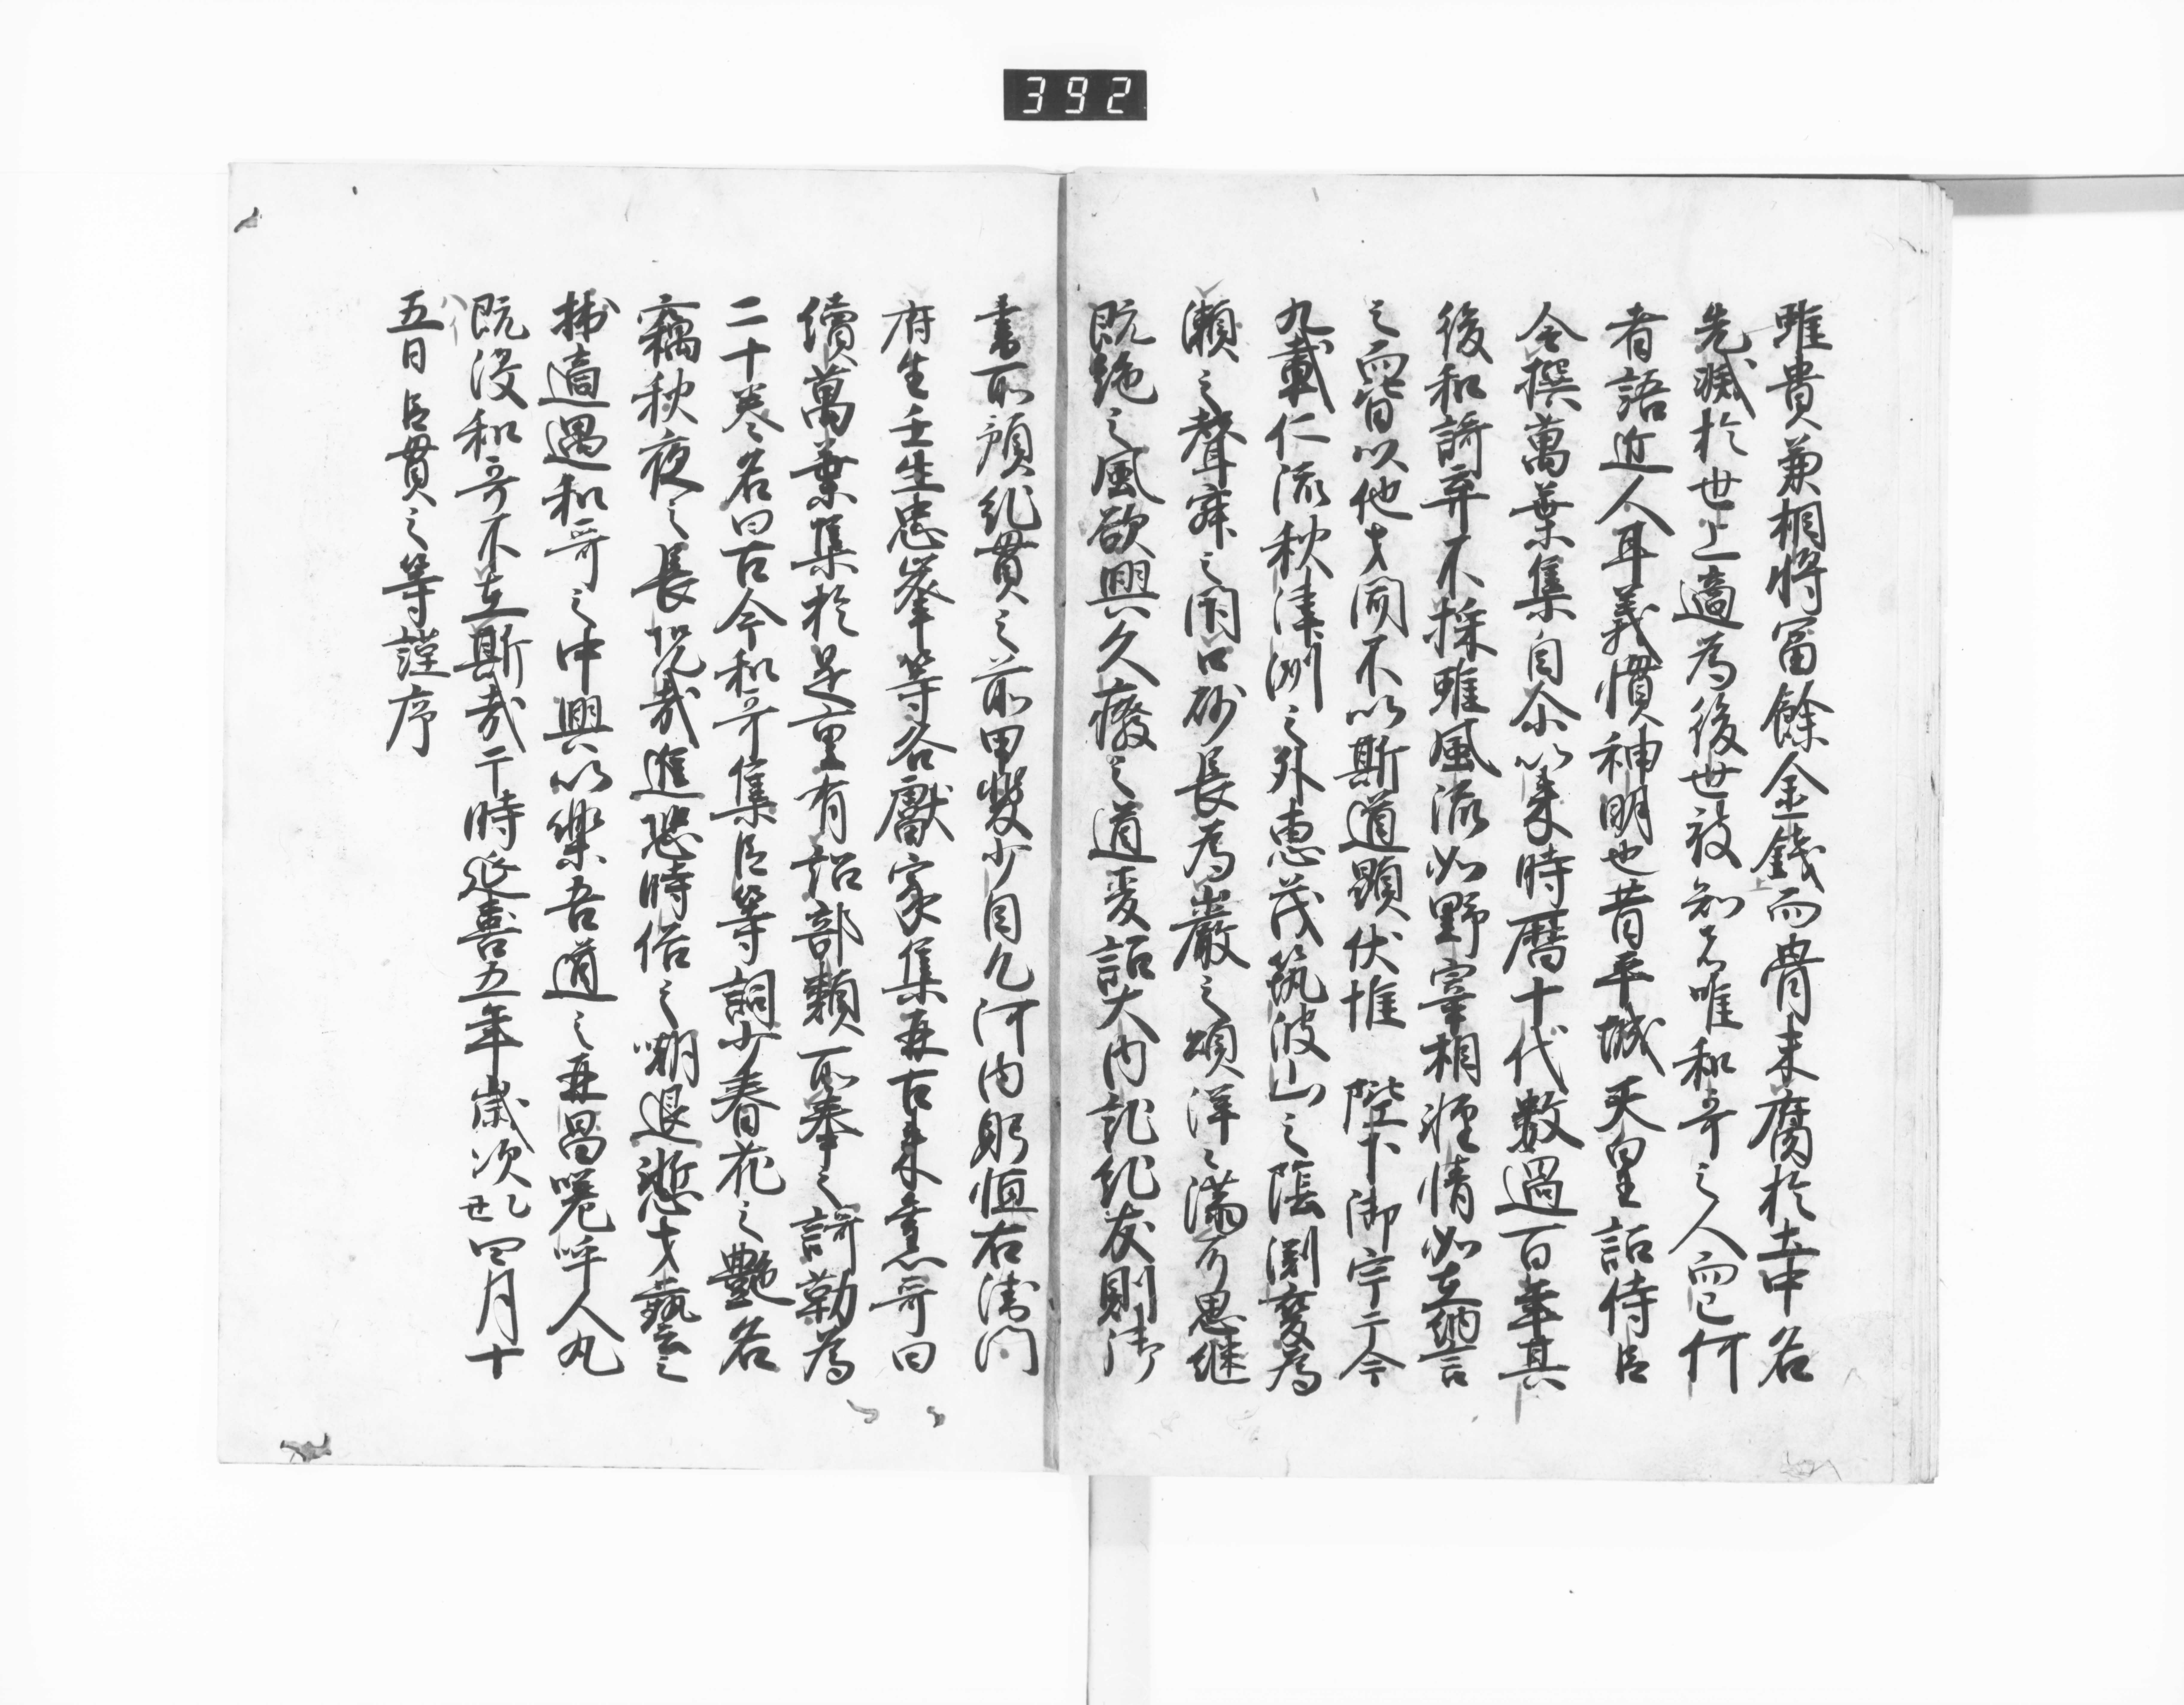 392
雖貴兼相将冨餘金錢而骨未腐於土中名
先滅於世上適為後世被知者唯和哥之人而已何
者語近人耳義慣神明也昔平城天皇詔侍臣
令撰萬葉集自尒以来時暦十代數過百年其
後和謌弃不採雖風流如野宰相輕情如在納言
之而皆以他才聞不以斯道顕伏惟 陛下御宇于今
九載仁流秋津洲之外恵茂筑波山之陰渕変為
瀬之聲寂之閇口砂長為巖之頌洋々満耳思継
既絶之風欲興久癈之道爰詔大内記紀友則御
書所預紀貫之前甲斐少目凡河内躬恒右衛門
府生壬生忠峯等各獻家集并古来舊哥曰
續萬葉集於是重有詔部類所奉之謌勒為
二十巻名曰古今和哥集臣等詞少春花之艶名
竊秋夜之長況哉進恐時俗之嘲退慙才藝之
拙適遇和哥之中興以樂吾道之再昌嗟呼人丸
既没和哥不在斯哉于時延喜五年歳次乙丑四月十
五日臣貫之等謹序